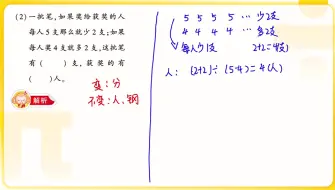 (2)一批笔,如果奖给获奖的人
每人5支那么就少2支;如果
每人奖4支就多2支。这批笔
有( )支,获奖的有
( )人。
解析
变:分
不变:人、钢
5 5 5 5 … 少2支
4 4 4 4 … 多2支
每人少1支 2+2=4(支)
人:(2+2)÷(5-4)=4(人)